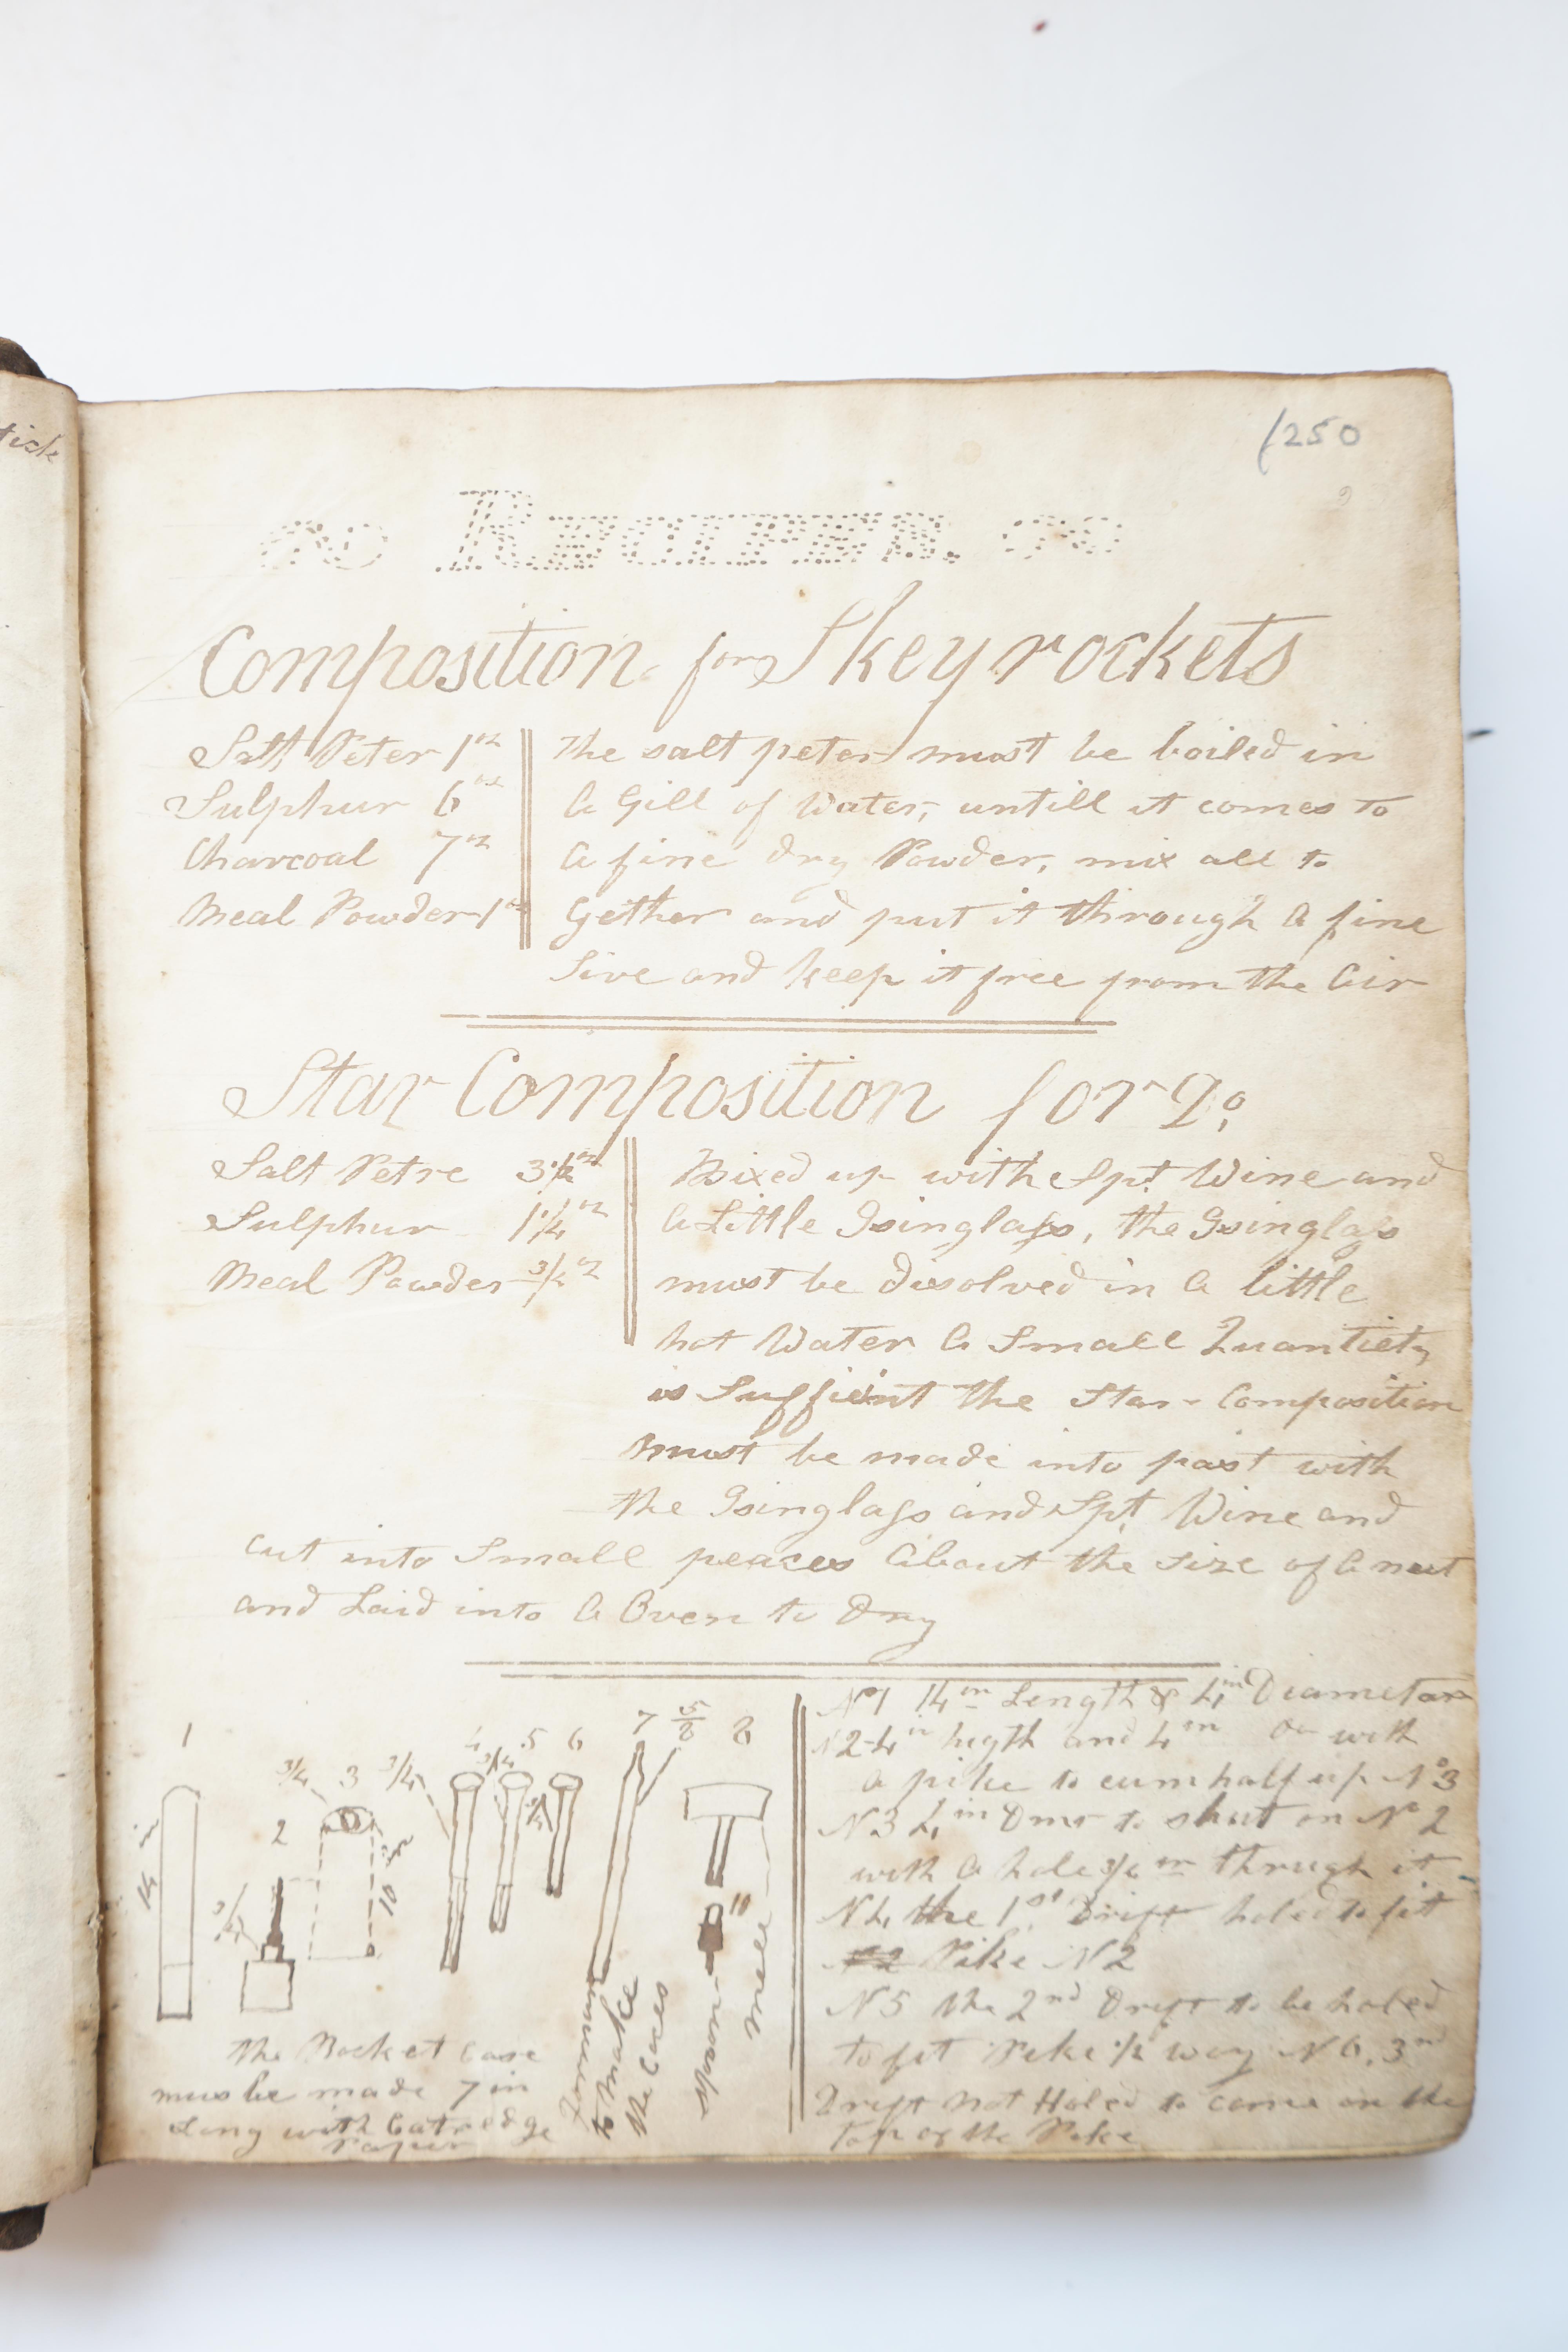 (250
Receipes.
Composition for Skeyrockets
Salt Peter 1 oz
Sulphur 6 oz
Charcoal 7 oz
Meal Powder 1 oz
the salt peter must be boiled in
a Gill of Water, untill it comes to
a fine dry Powder, mix all to
Gether and put it through a fine
Sive and keep it free from the air
Star Composition for Do
Salt Petre 3 1/2 oz
Sulphur 1 1/4 oz
Meal Powder 3/4 oz
Mixed up with Spt. Wine and
a Little Isinglass, the Isinglass
must be disolved in a little
hot Water a Small Quantiety
is Suffient the Star Composition
must be made into past with
the Isinglass and Spt. Wine and
cut into Small peaces about the Size of a nut
and Laid into a Oven to Dry
1
2
3
4
5
6
7
5/8
8
3/4
3/4
3/4
3/4
14 in
10 in
11
Formar
to make
the Cases
spoon
mall
the Rocket Case
mus be made 7 in
Long with Catredge
Papur
No 1 14 in Length & 4 in Diameter
N 2 4 in higth and 4 in Do with
a pike to cum half up No 3
N 3 4 in Dmr to shut on No 2
with a hole 3/4 in thrugh it
N 4 the 1st Drift holed to fit
Pike N 2
N 5 the 2nd Drift to be holed
to fit Pike 1/2 way N 6, 3rd
Drift not Holed to come on the
Top of the Pike